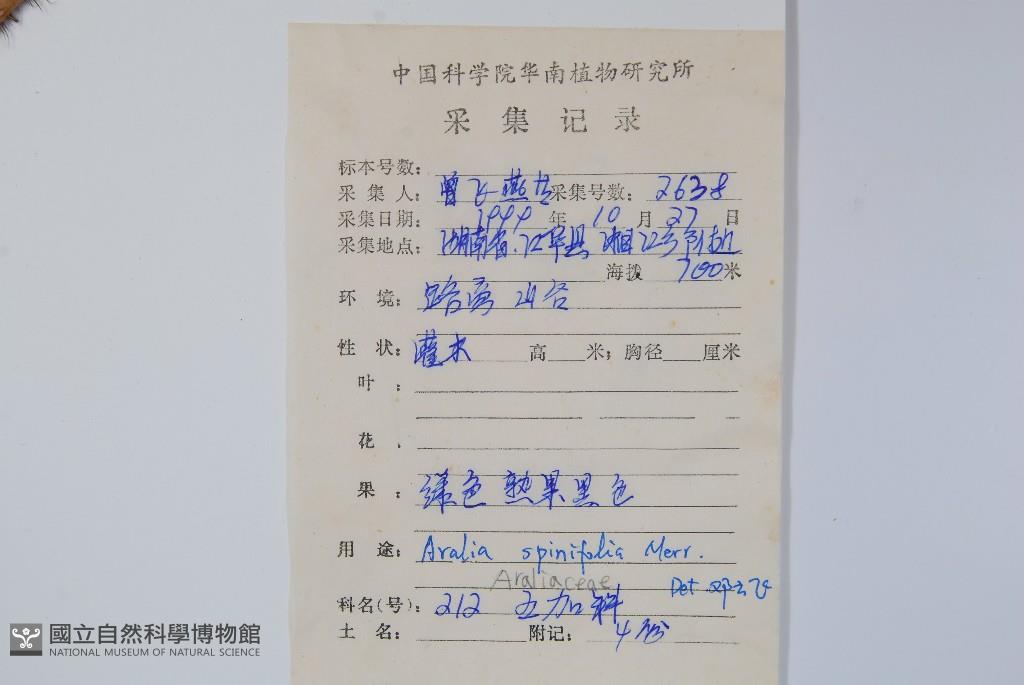 中国科学院华南植物研究所
采集记录
标本号数:
采集人: 曾飞燕等 采集号数: 2638
采集日期: 1999 年 10 月 27 日
采集地点: 湖南省.江华县 湘江乡附近
海拨 700米
环境: 路旁 山谷
性状: 灌木 高 米; 胸径 厘米
叶:
花.
果: 绿色 熟果黑色
用途: Aralia spinifolia Merr.
Araliaceae Det 邓云飞
科名(号): 212 五加科
土名: 附记: 4份
國立自然科學博物館
NATIONAL MUSEUM OF NATURAL SCIENCE